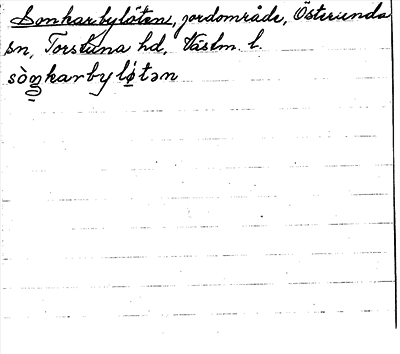 Somkarbylöten, jordområde, Österunda
sn, Torstuna hd, Västm. l.
sò̱m̥karby lǿ̱tən